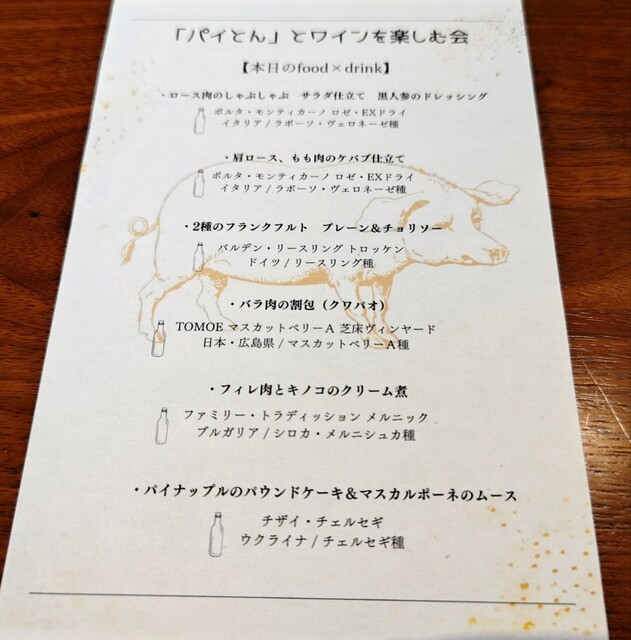 「パイとん」とワインを楽しむ会
【本日のfood×drink】
・ロース肉のしゃぶしゃぶ　サラダ仕立て　黒人参のドレッシング
ポルタ・モンティカーノ ロゼ・EXドライ
イタリア / ラボーソ・ヴェロネーゼ種
・肩ロース、もも肉のケバブ仕立て
ポルタ・モンティカーノ ロゼ・EXドライ
イタリア / ラボーソ・ヴェロネーゼ種
・2種のフランクフルト　プレーン&チョリソー
バルデン・リースリング トロッケン
ドイツ / リースリング種
・バラ肉の割包（クワパオ）
TOMOE マスカットベリーA 芝床ヴィンヤード
日本・広島県 / マスカットベリーA種
・フィレ肉とキノコのクリーム煮
ファミリー・トラディッション メルニック
ブルガリア / シロカ・メルニシュカ種
・パイナップルのパウンドケーキ&マスカルポーネのムース
チザイ・チェルセギ
ウクライナ / チェルセギ種